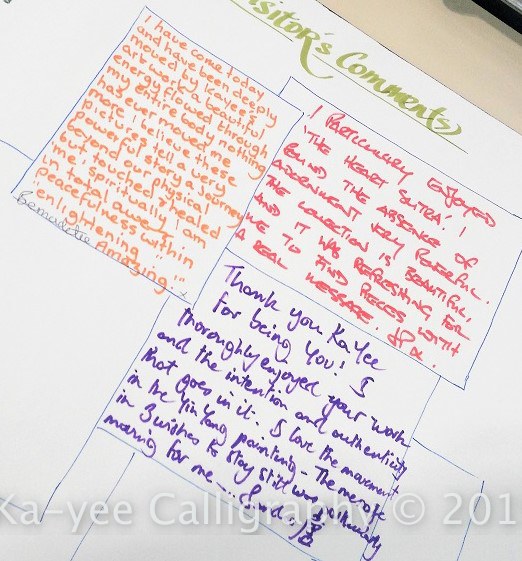 Visitor's Comments
I have come today
and have been deeply
moved by Kayee's
art work, a beautiful
energy flowed through
my entire body, nothing
has ever moved me
more I believe these
pictures tell a very
powerful story a journey
beyond our physical
but touched & healed
me spiritually I am
in total awe,
peacefulness within
enlightening!!
Amazing!" x
Bernadette
I PARTICULARLY ENJOYED
'THE HEART SUTRA'. I
FOUND THE ABSENCE OF
ADORNMENT VERY POWERFUL.
THE COLLECTION IS BEAUTIFUL,
AND IT WAS REFRESHING FOR
ME TO FIND PIECES WITH
A REAL MESSAGE.
Thank you KaYee
for being You! I
thoroughly enjoyed your work
and the intention and authenticity
that goes in it. I love the movement
in the Yin Yang painting - The
in 3 wishes to stay still was
moving for me ...
Ka-yee Calligraphy © 201